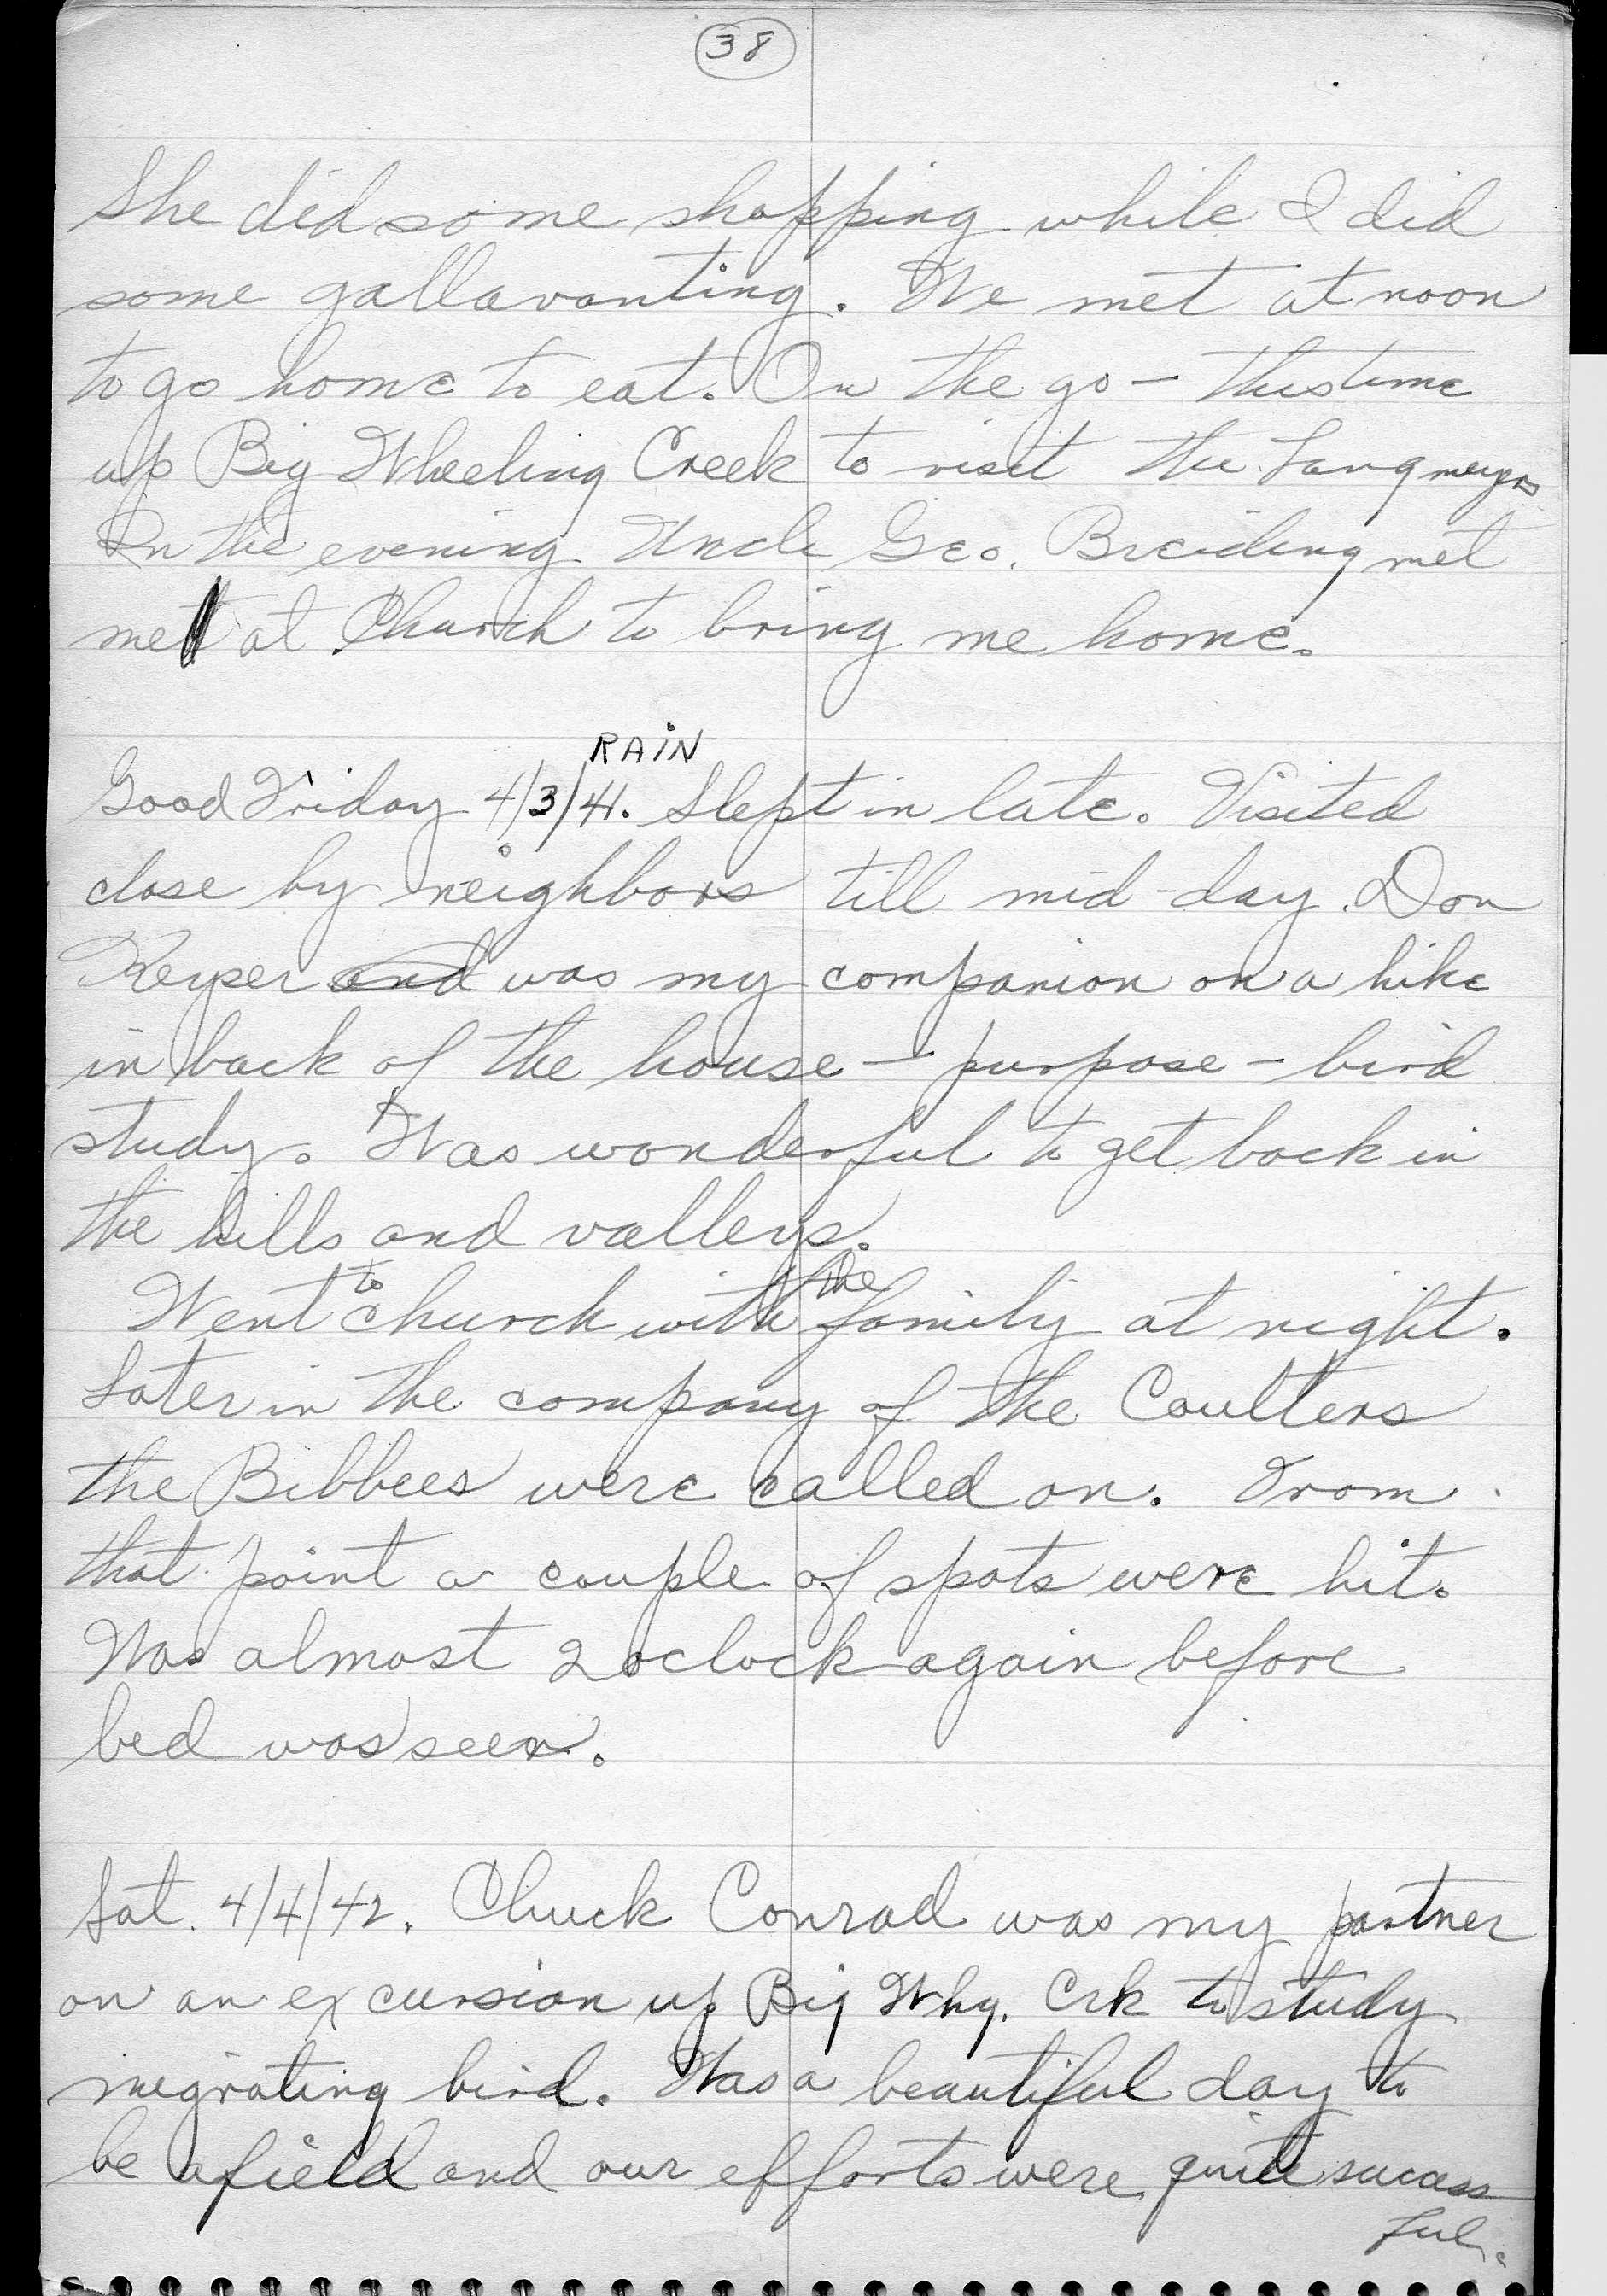 38
She did some shopping while I did
some gallavanting. We met at noon
to go home to eat. On the go - this time
up Big Wheeling Creek to visit the Langmeyers
In the evening Uncle Geo. Breiding met
me at Church to bring me home.
RAIN
Good Friday 4/3/41. Slept in late. Visited
close by neighbors till mid-day. Don
Keyser and was my companion on a hike
in back of the house - purpose - bird
study. Was wonderful to get back in
the hills and valleys.
Went to church with the family at night.
Later in the company of the Coulters
the Bibbees were called on. From
that point a couple of spots were hit.
Was almost 2 oclock again before
bed was seen.
Sat. 4/4/42. Chuck Conrad was my partner
on an excursion up Big Whg. Crk to study
migrating bird. Was a beautiful day to
be afield and our efforts were quite success
ful.